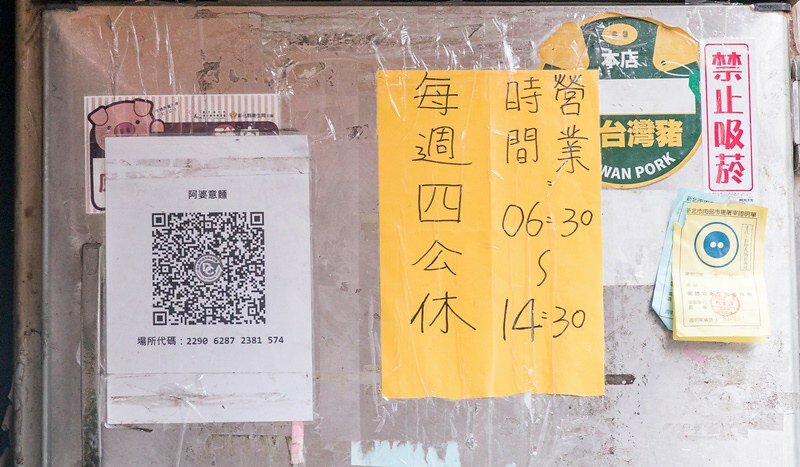 阿婆意麵
場所代碼：2290 6287 2381 574
營業
時間：
06:30
∫
14:30
每週四公休
本店
台灣豬
WAN PORK
禁止吸菸
新北市肉品市場屠宰證明單